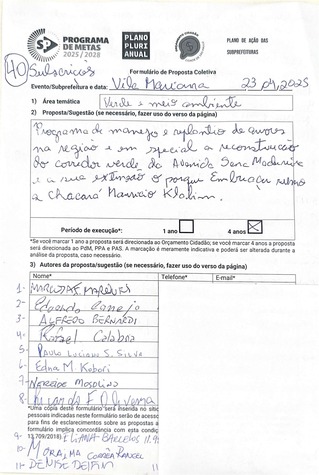 SP
PROGRAMA
DE METAS
2025/2028
PLANO
PLURI
ANUAL
PLANO DE AÇÃO DAS
SUBPREFEITURAS
40 Subscrições
Formulário de Proposta Coletiva
Evento/Subprefeitura e data: Vila Mariana 23.04.2025
1) Área temática Verde e meio ambiente
2) Proposta/Sugestão (se necessário, fazer uso do verso da página)
Programa de manejo e replantio de árvores
na região e em especial a reconstrução
do corredor verde da Avenida Sena Madureira
e a sua extinção o porque Embuaçu rumo
a chacará Maurício Klabin.
Período de execução*: 1 ano 4 anos X
*Se você marcar 1 ano a proposta será direcionada ao Orçamento Cidadão; se você marcar 4 anos a
proposta será direcionada ao PdM, PPA e PAS. A marcação é meramente indicativa e poderá ser alterada durante a
análise da proposta, caso necessário.
3) Autores da proposta/sugestão (se necessário, fazer uso do verso da página)
Nome* Telefone* E-mail*
1-
2- Eduardo Canejo
3- ALFREDO BERNARDI
4- Rafael Calabria
5- PAULO LUCIANO S. SILVA
6- Edna M. Kobori
7- Nereide Mosolino
8- F Oliveira
*Uma cópia deste formulário será inserida no sítio
pessoas indicadas neste formulário serão de acesso
para fins de esclarecimentos sobre as propostas a
formulário implica concordância com esta condição
13.709/2018)
9- ELIANA BARCELOS 11.9
10- MORAIMA CORRÊA RANGEL
11- DENISE DELFIM